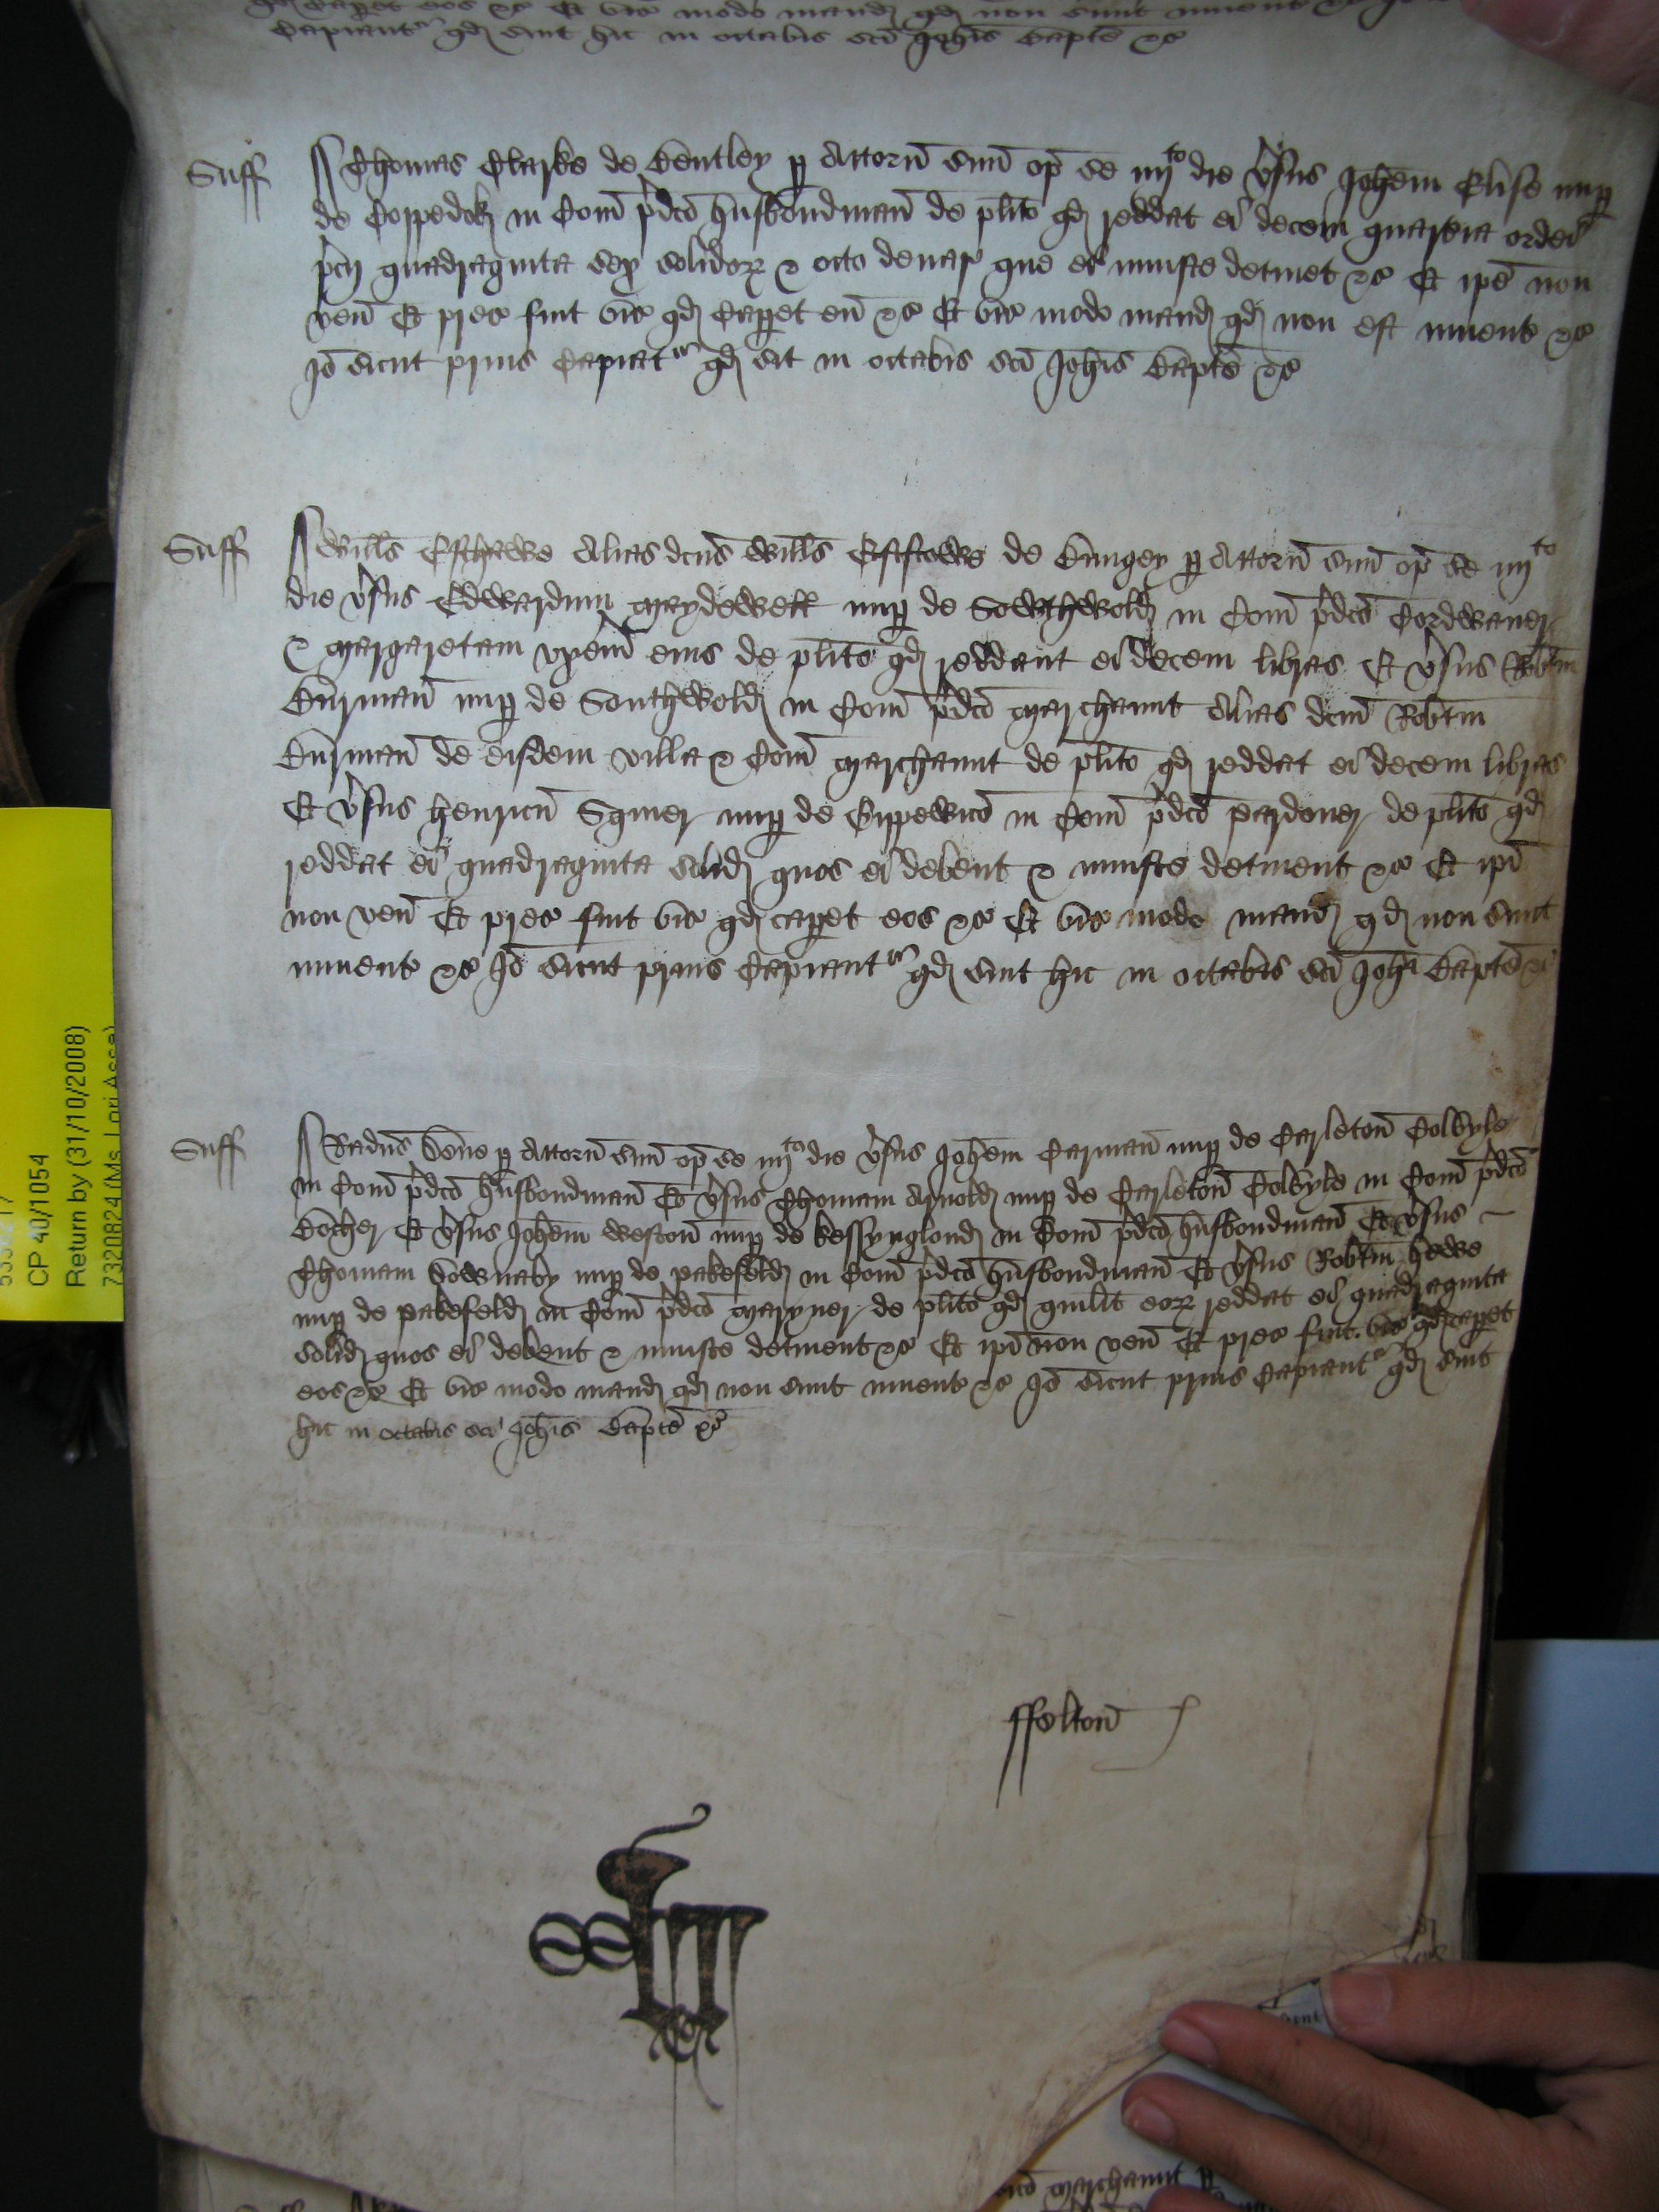 capiantr qd sint hic in octabis sci Johis Bapte &c
Suff
Thomas Clarke de Bentley p Attorn suu op se iiijto die vsus Johem Elise nup
de Coppedok in Com pdco husbondman de plito qd reddat ei decem quarteria ordei
pcij quadraginta sex solidor & octo denar que ei iniuste detinet &c Et ipe non
ven Et prec fuit vic qd caperet eu &c Et vic modo mand qd non est inuent &c
Io sicut prius capiatr qd sit in octabis sci Johis Bapte &c
Suff
Wills Esthawe Alias dcus Wills Eststowe de Bungey p Attorn suu op se iiijto
die vsus Edwardum Maydewell nup de Sowthwold in Com pdco Cordwaner
& Margaretam vxem eius de plito qd reddant ei decem libras Et vsus Robtm
Burman nup de Southwold in Com pdco Marchaunt Alias dcm Robtm
Burman de eisdem villa & Com Marchaunt de plito qd reddat ei decem libras
Et vsus Henricu Squier nup de Gippewico in Com pdco Pardoner de plito qd
reddat ei quadraginta solid quos ei debent & iniuste detinent &c Et ipi
non ven Et prec fuit vic qd caperet eos &c Et vic modo mand qd non sunt
inuent &c Io sicut prius capiantr qd sint hic in octabis sci Johis Bapte &c
Suff
Radus Bene p Attorn suu op se iiijto die vsus Johem Carman nup de Carleton Colvyle
in Com pdco husbondman Et vsus Thomam Arnold nup de Carleton Colvyle in Com pdco
Bocher Et vsus Johem Weston nup de Kessynglond in Com pdco husbondman Et vsus
Thomam Downaby nup de Pakefeld in Com pdco husbondman Et vsus Robtm Hewe
nup de Pakefeld in Com pdco Maryner de plito qd quilit eor reddat ei quadraginta
solid quos ei debent & iniuste detinent &c Et ipi non ven Et prec fuit vic qd caperet
eos &c Et vic modo mand qd non sunt inuent &c Io sicut prius capiantr qd sint
hic in octabis sci Johis Bapte &c
ffelton
CP 40/1054
Return by (31/10/2008)
7320824 (Ms. Lori